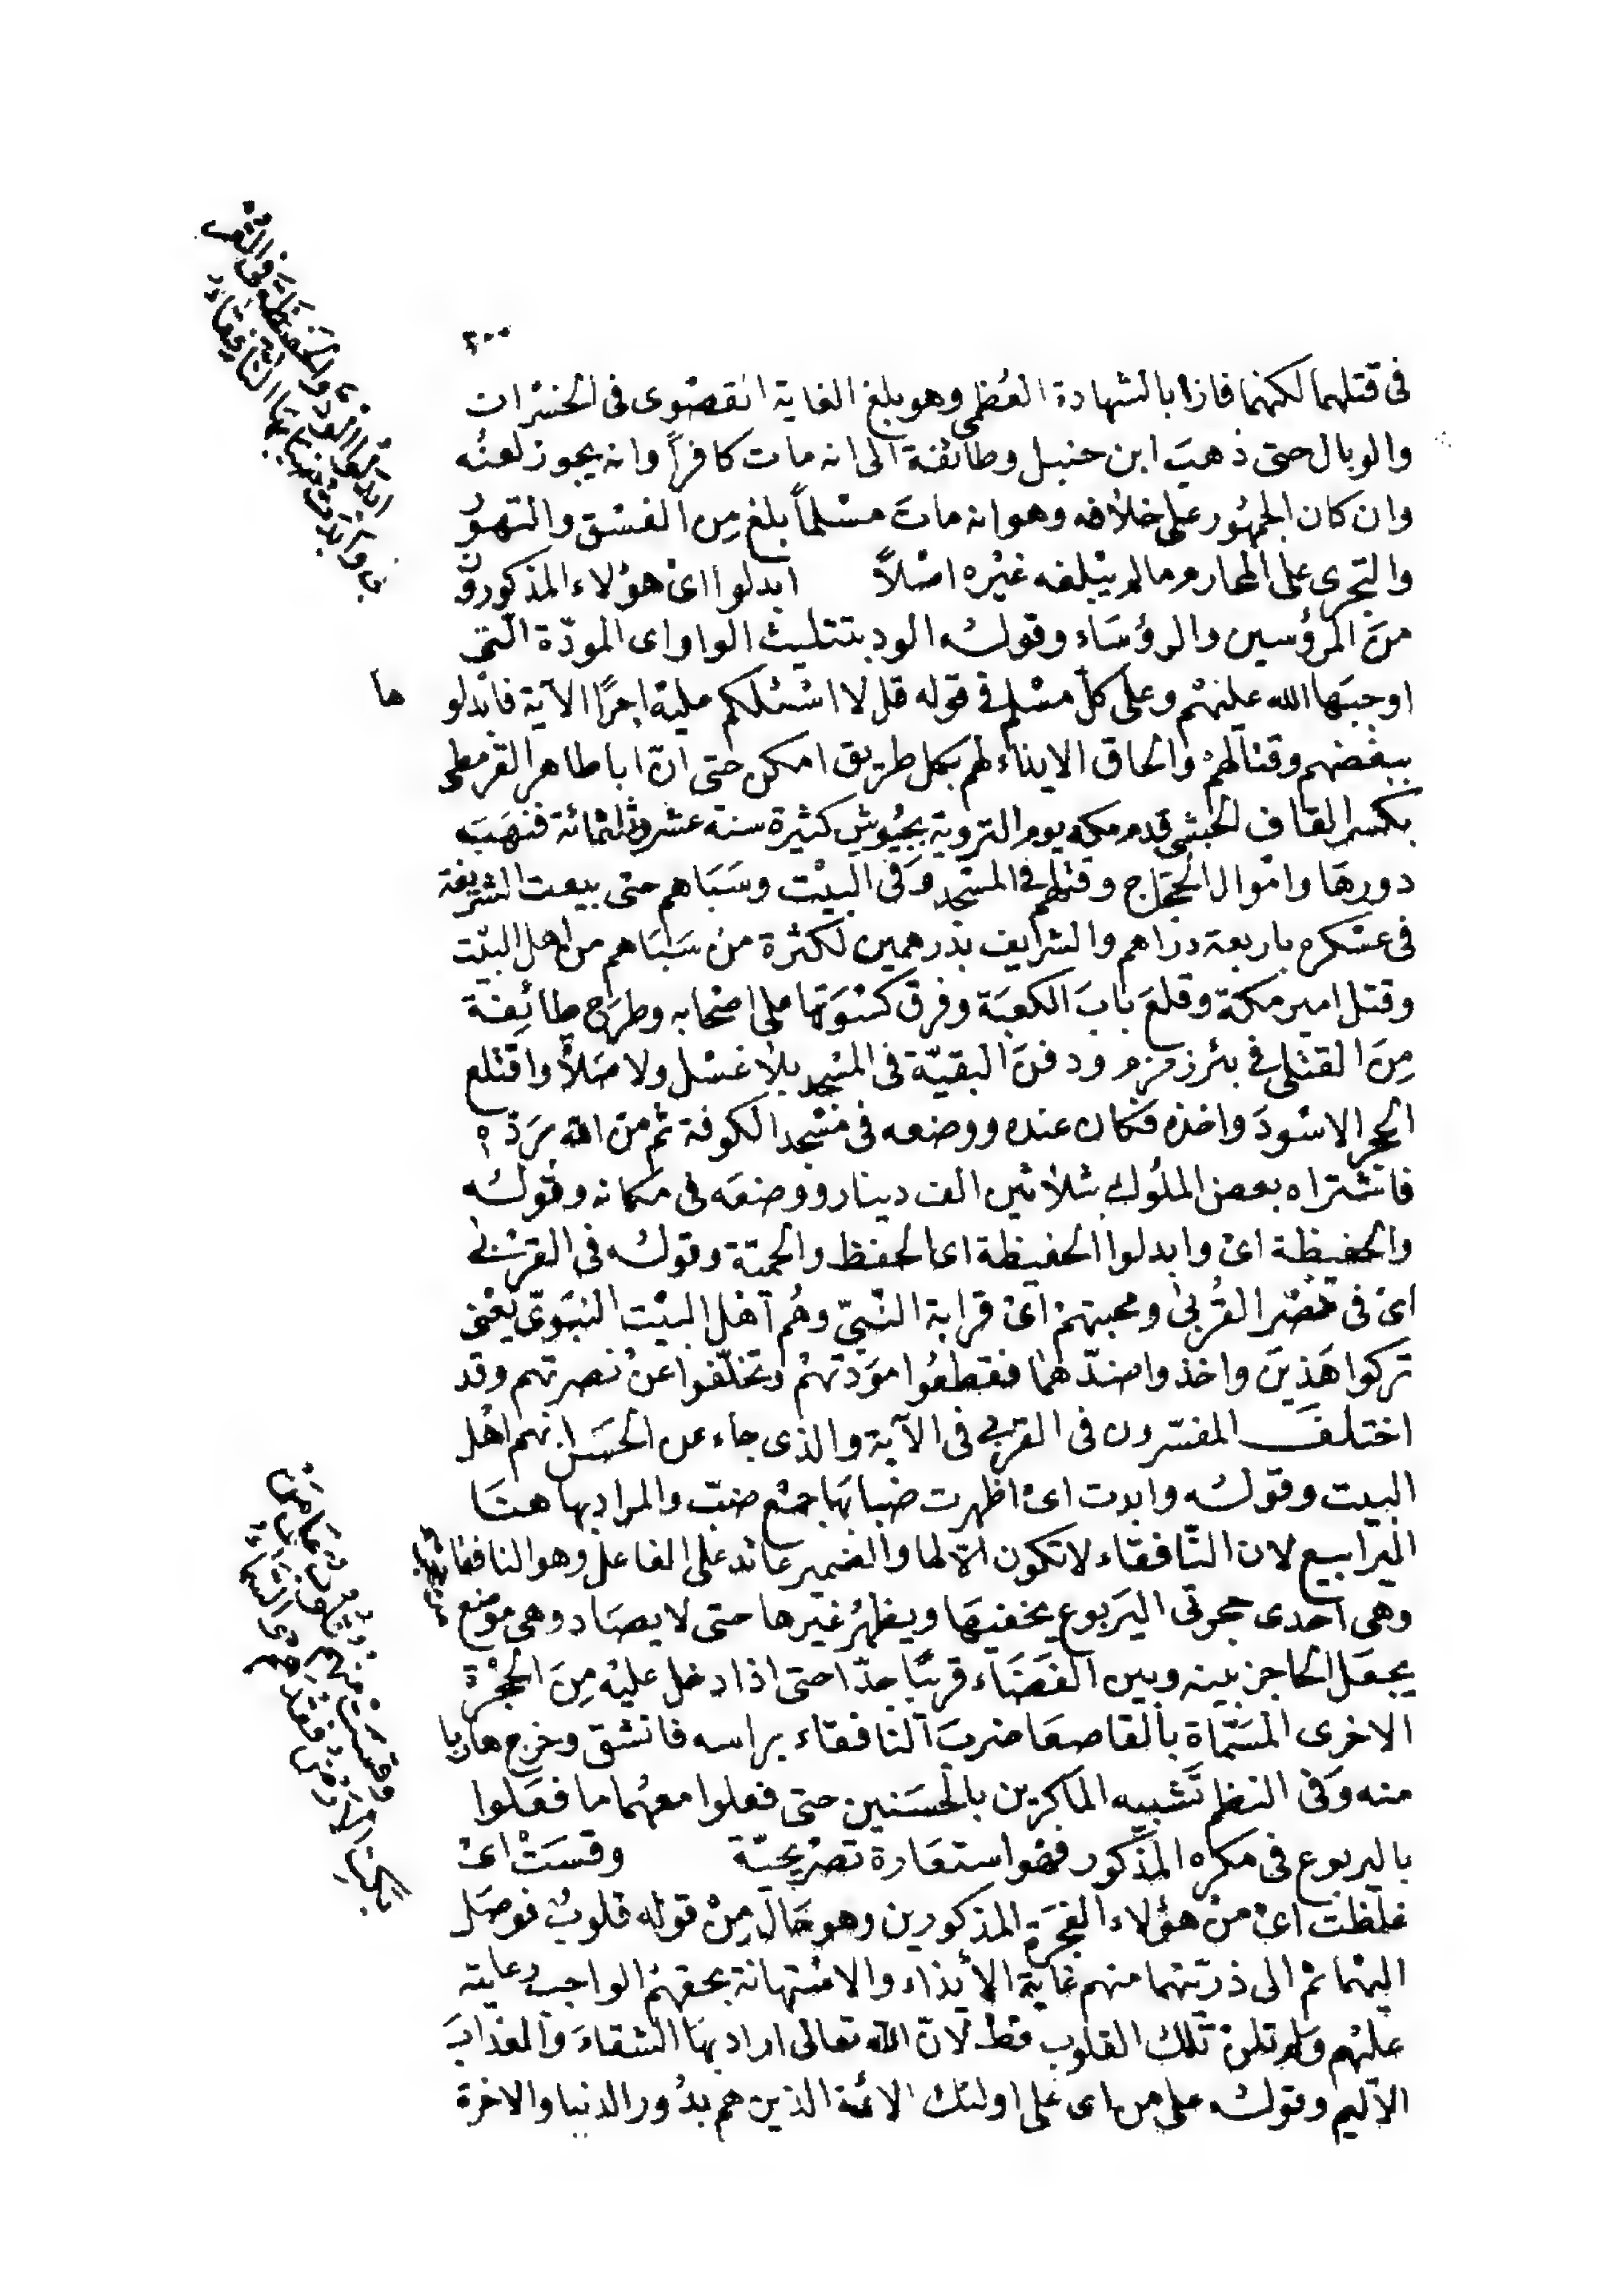 ٢٠٠
ابدلوا الودّ والحفيظة في القر
بى وابدت ضبابها النافقاء
في قتلهما لكنهما فازا بالشهادة العُظمى وهو بلغ الغاية القصْوى في الخسْران
والوبال حتى ذهبَ ابن حنبل وطائفة الى انه مات كافراً وانه يجوز لعنُه
وان كان الجمهُور على خلافه وهو انه ماتَ مسْلماً بلغ مِن الفسْق والتهوُّ
والتجرى على المحارم ما لم يبْلغه غيْره اصْلاً ابدلوا اىْ هؤلاء المذكورون
منَ المرؤسين والرؤسَاء وقولُه الود بتثليث الواو اى المودّة التى
اوجبَها الله عليهْم وعلى كلّ مسْلم في قوله قل لا اسْئلكم عليْه اجرًا الآية فابْدلو ها
ببغْضهم وقتالهمْ والحاق الايذاء لهم بكل طريق امكن حتى انّ ابا طاهر القرمطى
بكسر القاف الحبشى قدم مكه يوم التروية بجيُوشٍ كثيرة سنة عشر وثلثمائة فنهَبَ
دورهَا وامْوال الحجّاج وقتلهم في المسْجد وَفى البيْت وسَبَاهم حتى بيعت الشريفة
فى عسْكره باربعة دراهم والشرايف بدرهمين لكثرة منْ سَبَاهم من اهل البيْت
وقتل امير مكة وقلعَ بابَ الكعبَة وفرق كسْوَتها على اصْحابه وطرَح طائِفة
مِنَ القتْلى في بئر زمزم ودفنَ البقيّة فى المسْجد بلا غسْل ولا صَلاة واقتْلع
الحجر الاسْودَ واخذه فكان عنده ووضعه فى مسْجد الكوفة ثم منّ الله بردّه
فاشْتراه بعض الملُوك بثلاثين الف دينار ووضعَه فى مكانه وقولُه
والحفيظة اىْ وابدلوا الحفيظة اى الحفظ والحميّة وقولُه فى القرْبى
اىْ فى نصْر القُربى ومحبتهمْ اىْ قرابة النّبيّ وهُم اهْل البيْت النبَوىّ يَعْنى
تركوا هَذينِ واخذوا ضدّهما فقطعُوا موَدّتهمْ وتخلّفوا عنْ نصرتهم وقد
اختلفَ المفسّرون فى القربى فى الآية والذى جاء عن الحَسَن انهم اهْل
البيت وقولُه وابدت اىْ اظهرت ضبابهَا جمْع ضبّ والمراد بها هنَا
اليرابيع لان النّافقاء لا تكون الّا لها والضمير عائد على الفاعل وهو النافقاء
وهى احدى حجرتى اليَربوع يخفيهَا ويظهرُ غيْرها حتى لا يصَاد وهى موْضع
يجعَل الحاجز بينه وبين الفَضَاء قريبًا جدّا حتى اذا دخل عليْه مِنَ الحجْرة
الاخرى المسَمّاة بالقاصعَا ضربَ النافقاء براسه فانشق وخرج هاربا
منه وَفى النظم تَشبيه الماكرين بالحسَنين حتى فعلوا معهُما ما فعَلوا
باليربوع فى مكره المذكور فهْو استعَارة تصْريحيّة وقسَتْ اىْ
غلظت اىْ منْ هؤلاء الفجَرة المذكورين وهو حَال مِنْ قوله قلوبٌ فوصَل
اليهْما ثمْ الى ذرّيّتهما منهم غاية الايْذاء والاسْتهانة بحقهمْ الواجب رعايته
عليْهم وَلم تلنْ تلك القلوب قطّ لانّ الله تعالى اراد بهَا الشقاءَ والعذابَ
الاليم وقولُه على من اى على اولئك الائمة الذين هم بدُور الدنيا والاخرة
وقسَتْ منهمُ قلوبٌ على مَنْ
بكتِ الارْضُ فقدَهم والسّماءُ